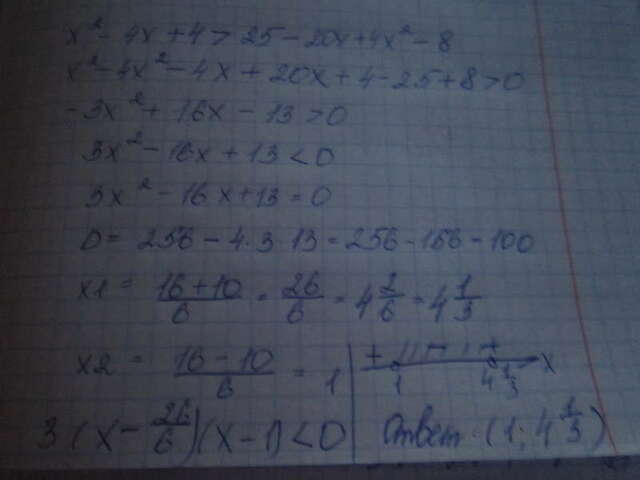 x² - 4x + 4 > 25 - 20x + 4x² - 8
x² - 4x² - 4x + 20x + 4 - 25 + 8 > 0
-3x² + 16x - 13 > 0
3x² - 16x + 13 < 0
3x² - 16x + 13 = 0
D = 256 - 4·3·13 = 256 - 156 = 100
x1 = (16+10)/6 = 26/6 = 4 2/6 = 4 1/3
x2 = (16-10)/6 = 1
+ - + x
1 4 1/3
3(x - 26/6)(x-1) < 0
Ответ: (1; 4 1/3)